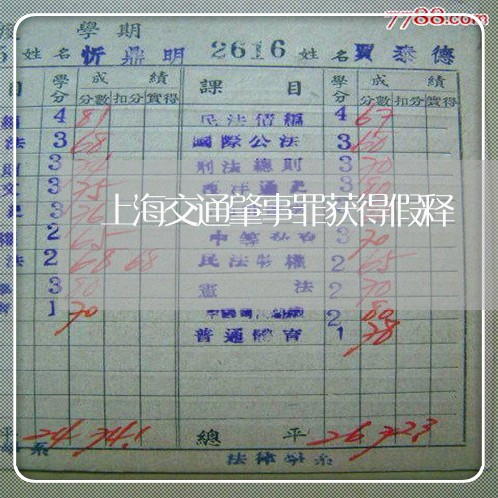 7788.com
學期
姓名 忻鼎明 2616 姓名 賈泰德
目 學分 成績 課目 學分 成績
分數 扣分 實得 分數 扣分 實得
4 81 民法債編 4 67
法 3 68 國際公法 3 60
3 刑法總則 3 70
3 75 西洋通史 3 80
上海交通肇事罪获得假释
2 65 3 70
法 2 68 68 民法物權 2 65
3 80 憲法 2 70
1 70 2 80
普通體育 1 78
平 24 74.1 總平 26 72.3
系 法律學系